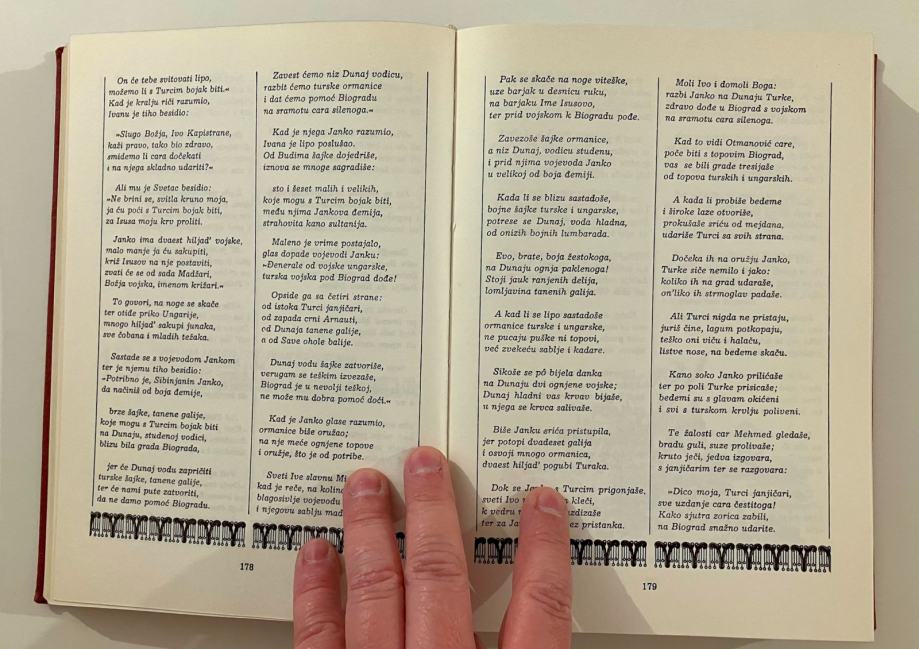 On će tebe svitovati lipo,
možemo li s Turcim bojak biti.«
Kad je kralju riči razumio,
Ivanu je tiho besidio:
»Slugo Božja, Ivo Kapistrane,
kaži pravo, tako bio zdravo,
smidemo li cara dočekati
i na njega skladno udariti?«
Ali mu je Svetac besidio:
»Ne brini se, svitla kruno moja,
ja ću poći s Turcim bojak biti,
za Isusa moju krv proliti.
Janko ima dvaest hiljad' vojske,
malo manje ja ću sakupiti,
križ Isusov na nje postaviti,
zvati će se od sada Madžari,
Božja vojska, imenom križari.«
To govori, na noge se skače
ter otiđe priko Ungarije,
mnogo hiljad' sakupi junaka,
sve čobana i mladih težaka.
Sastade se s vojevodom Jankom
ter je njemu tiho besidio:
»Potribno je, Sibinjanin Janko,
da načiniš od boja đemije,
brze šajke, tanene galije,
koje mogu s Turcim bojak biti
na Dunaju, studenoj vodici,
blizu bila grada Biograda,
jer će Dunaj vodu zapričiti
turske šajke, tanene galije,
ter će nami pute zatvoriti,
da ne damo pomoć Biogradu.
178
Zavest ćemo niz Dunaj vodicu,
razbit ćemo turske ormanice
i dat ćemo pomoć Biogradu
na sramotu cara silenoga.«
Kad je njega Janko razumio,
Ivana je lipo poslušao.
Od Budima šajke dojedriše,
iznova se mnoge sagradiše:
sto i šeset malih i velikih,
koje mogu s Turcim bojak biti,
među njima Jankova đemija,
strahovita kano sultanija.
Maleno je vrime postajalo,
glas dopade vojevodi Janku:
»Đenerale od vojske ungarske,
turska vojska pod Biograd dođe!
Opside ga sa četiri strane:
od istoka Turci janjičari,
od zapada crni Arnauti,
od Dunaja tanene galije,
a od Save ohole balije.
Dunaj vodu šajke zatvoriše,
verugam se teškim izvezaše,
Biograd je u nevolji teškoj,
ne može mu dobra pomoć doći.«
Kad je Janko glase razumio,
ormanice biše oružao;
na nje meće ognjene topove
i oružje, što je od potribe.
Sveti Ivo slavnu
kad je reče, na
blagosivlje vojevodu
i njegovu sablju
Pak se skače na noge viteške,
uze barjak u desnicu ruku,
na barjaku Ime Isusovo,
ter prid vojskom k Biogradu pođe.
Zavezoše šajke ormanice,
a niz Dunaj, vodicu studenu,
i prid njima vojevoda Janko
u velikoj od boja đemiji.
Kada li se blizu sastadoše,
bojne šajke turske i ungarske,
potrese se Dunaj, voda hladna,
od onizih bojnih lumbarada.
Evo, brate, boja žestokoga,
na Dunaju ognja paklenoga!
Stoji jauk ranjenih delija,
lomljavina tanenih galija.
A kad li se lipo sastadoše
ormanice turske i ungarske,
ne pucaju puške ni topovi,
već zvekeću sablje i kadare.
Sikoše se pô bijela danka
na Dunaju dvi ognjene vojske;
Dunaj hladni vas krvav bijaše,
u njega se krvca salivaše.
Biše Janku srića pristupila,
jer potopi dvadeset galija
i osvoji mnogo ormanica,
dvaest hiljad' pogubi Turaka.
Dok se s Turcim prigonjaše,
sveti Ivo kleči,
k vedru uzdizaše
ter za bez pristanka.
Moli Ivo i domoli Boga:
razbi Janko na Dunaju Turke,
zdravo dođe u Biograd s vojskom
na sramotu cara silenoga.
Kad to vidi Otmanović care,
poče biti s topovim Biograd,
vas se bili grade tresijaše
od topova turskih i ungarskih.
A kada li probiše bedeme
i široke laze otvoriše,
prokušaše sriću od mejdana,
udariše Turci sa svih strana.
Dočeka ih na oružju Janko,
Turke siče nemilo i jako:
koliko ih na grad udaraše,
on'liko ih strmoglav padaše.
Ali Turci nigda ne pristaju,
juriš čine, lagum potkopaju,
teško oni viču i halaču,
listve nose, na bedeme skaču.
Kano soko Janko priličaše
ter po poli Turke prisicaše;
bedemi su s glavam okićeni
i svi s turskom krvlju poliveni.
Te žalosti car Mehmed gledaše,
bradu guli, suze prolivaše;
kruto ječi, jedva izgovara,
s janjičarim ter se razgovara:
»Dico moja, Turci janjičari,
sve uzdanje cara čestitoga!
Kako sjutra zorica zabili,
na Biograd snažno udarite.
179